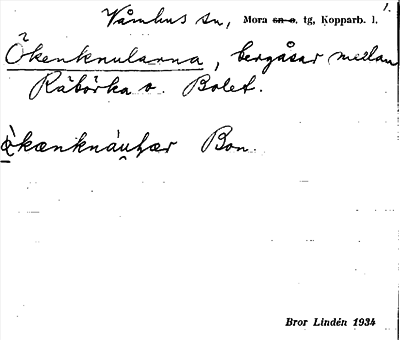 1.
Våmhus sn, Mora sn o. tg, Kopparb. l.
Ökenknularna, bergåsar mellan
Råbörka o. Bolet.
Bon.
Bror Lindén 1934